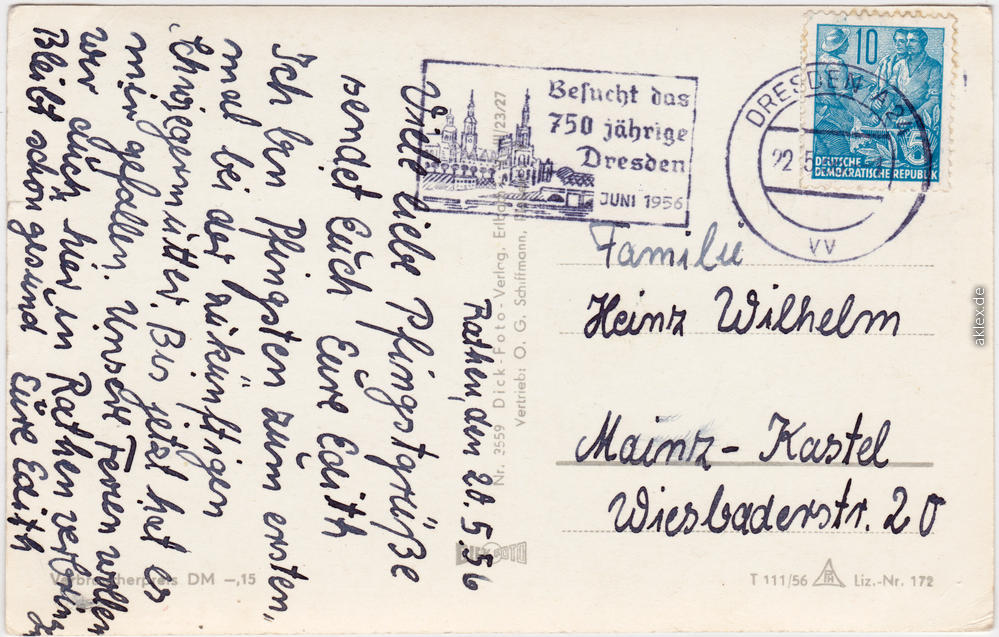 Rathen, den 20. 5. 56
Viele liebe Pfingstgrüße
sendet Euch Eure Edith
Ich bin Pfingsten zum ersten
mal bei der zukünftigen
Schwiegermutter. Bis jetzt hat es
mir gefallen. Unsere Ferien wollen
wir auch hier in Rathen verbring
Bleibt schön gesund Eure Edith
Besucht das
750 jährige
Dresden
JUNI 1956
DRESDEN
22.5
VV
10
5
DEUTSCHE
DEMOKRATISCHE REPUBLIK
Familie
Heinz Wilhelm
Mainz-Kastel
Wiesbaderstr. 20
Nr. 3559 Dick-Foto-Verlag,
Vertrieb: O. G. Schiffmann,
/23/27
FOTO
Verbraucherpreis DM –,15
T 111/56
Liz.-Nr. 172
aklex.de